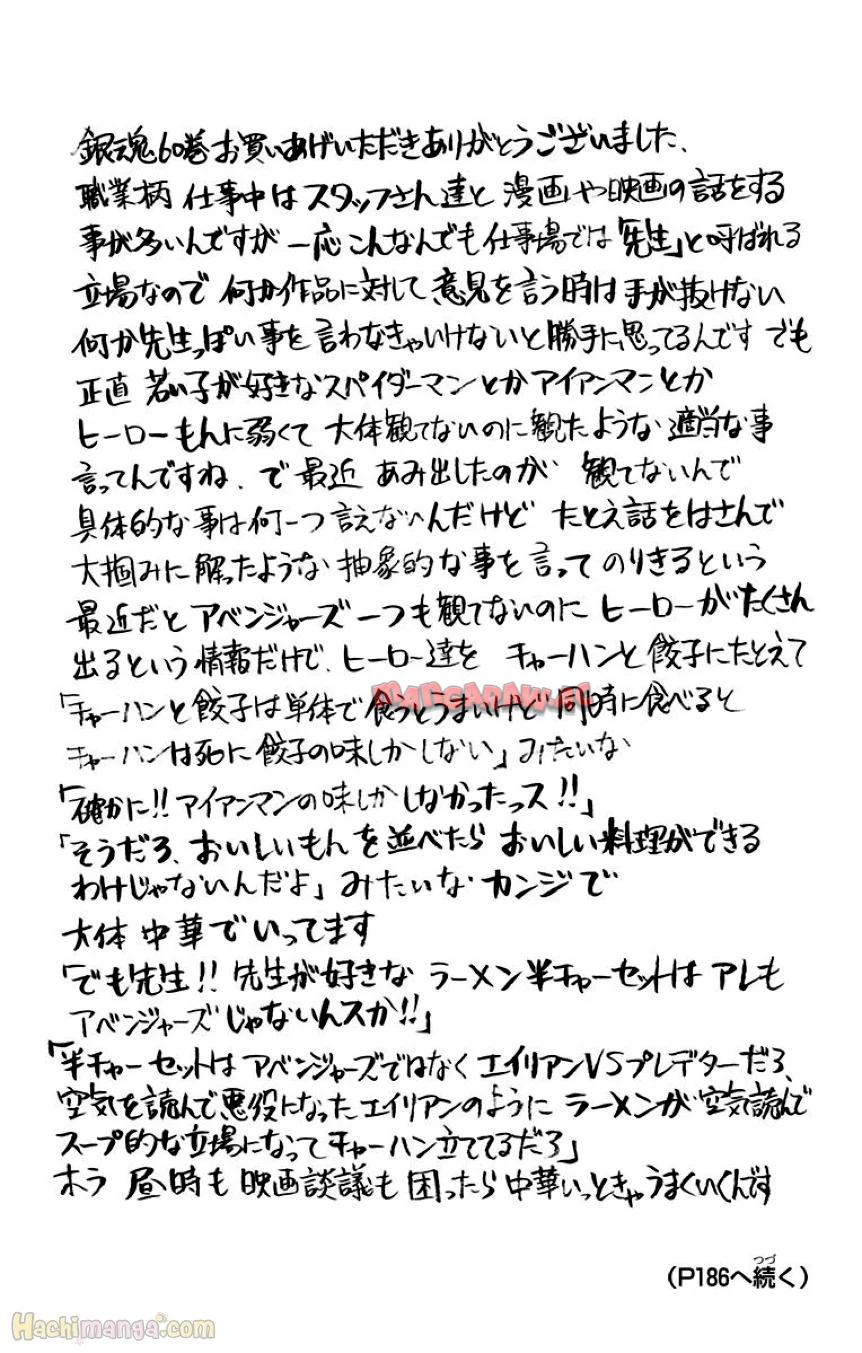 銀魂60巻お買いあげいただきありがとうございました、
職業柄 仕事中はスタッフさん達と 漫画や映画の話をする
事が多いんですが 一応こんなんでも仕事場では「先生」と呼ばれる
立場なので 何か作品に対して意見を言う時は手が抜けない
何か先生っぽい事を言わなきゃいけないと勝手に思ってるんです でも
正直 若い子が好きなスパイダーマンとかアイアンマンとか
ヒーローもんに弱くて 大体観てないのに観たような適当な事
言ってんですね、で最近 あみ出したのが 観てないんで
具体的な事は何一つ言えないんだけど たとえ話をはさんで
大掴みに解ったような抽象的な事を言って のりきるという
最近だとアベンジャーズ一つも観てないのに ヒーローがたくさん
出るという情報だけで、ヒーロー達を チャーハンと餃子にたとえて
MANGARAW.AC
「チャーハンと餃子は単体で食うとうまいけど同時に食べると
チャーハンは死に餃子の味しかしない」みたいな
「確かに!!アイアンマンの味しかしなかったっス!!」
「そうだろ、おいしいもんを並べたら おいしい料理ができる
わけじゃないんだよ」みたいなカンジで
大体 中華でいってます
「でも先生!! 先生が好きな ラーメン半チャーセットは アレも
アベンジャーズじゃないんスか!!」
「半チャーセットは アベンジャーズではなくエイリアンVSプレデターだろ、
空気を読んで悪役になったエイリアンのように ラーメンが空気読んで
スープ的な立場になってチャーハン立ててるだろ」
ホラ 昼時も映画談議も困ったら中華いっときゃうまくいくんです
つづ
(P186へ続く)
Hachimanga.com